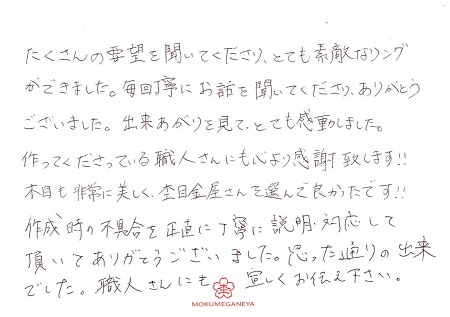 たくさんの要望を聞いてくださり、とても素敵なリング
ができました。毎回丁寧にお話を聞いてくださり、ありがとう
ございました。出来あがりを見て、とても感動しました。
作ってくださっている職人さんにも心より感謝致します!!
木目も非常に美しく、杢目金屋さんを選んで良かったです!!
作成時の不具合を正直に丁寧に説明・対応して
頂いてありがとうございました。思った通りの出来
でした。職人さんにも宜しくお伝え下さい。
MOKUMEGANEYA